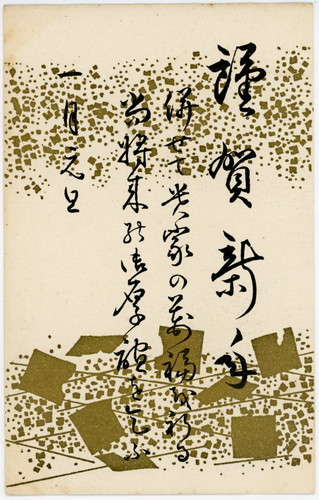 謹賀新年
併せて貴家の萬福を祈る
尚将来の御厚誼を乞ふ
一月元旦